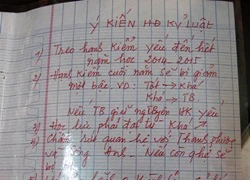 Ý KIẾN HĐ KỶ LUẬT
1) Theo hạnh kiểm yếu đến hết
năm học 2014-2015
2) Hạnh kiểm cuối năm sẽ bị giảm
một bậc VD: Tốt → Khá
Khá → TB
Nếu TB giữ nguyên HK yếu
3) Học lực phải đạt từ Khá
4) Chấm dứt quan hệ với Thanh
Nếu còn ghé sẽ
bị